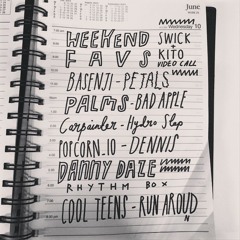 June
Wednesday 10
WEEKEND
FAVS
SWICK
+
KITO
VIDEO CALL
BASENJI - PETALS
PALMS - BAD APPLE
Carpainter - Hydro Slap
POPCORN_10 - DENNIS
DANNY DAZE
RHYTHM BOX
COOL TEENS - RUN AROUD
N